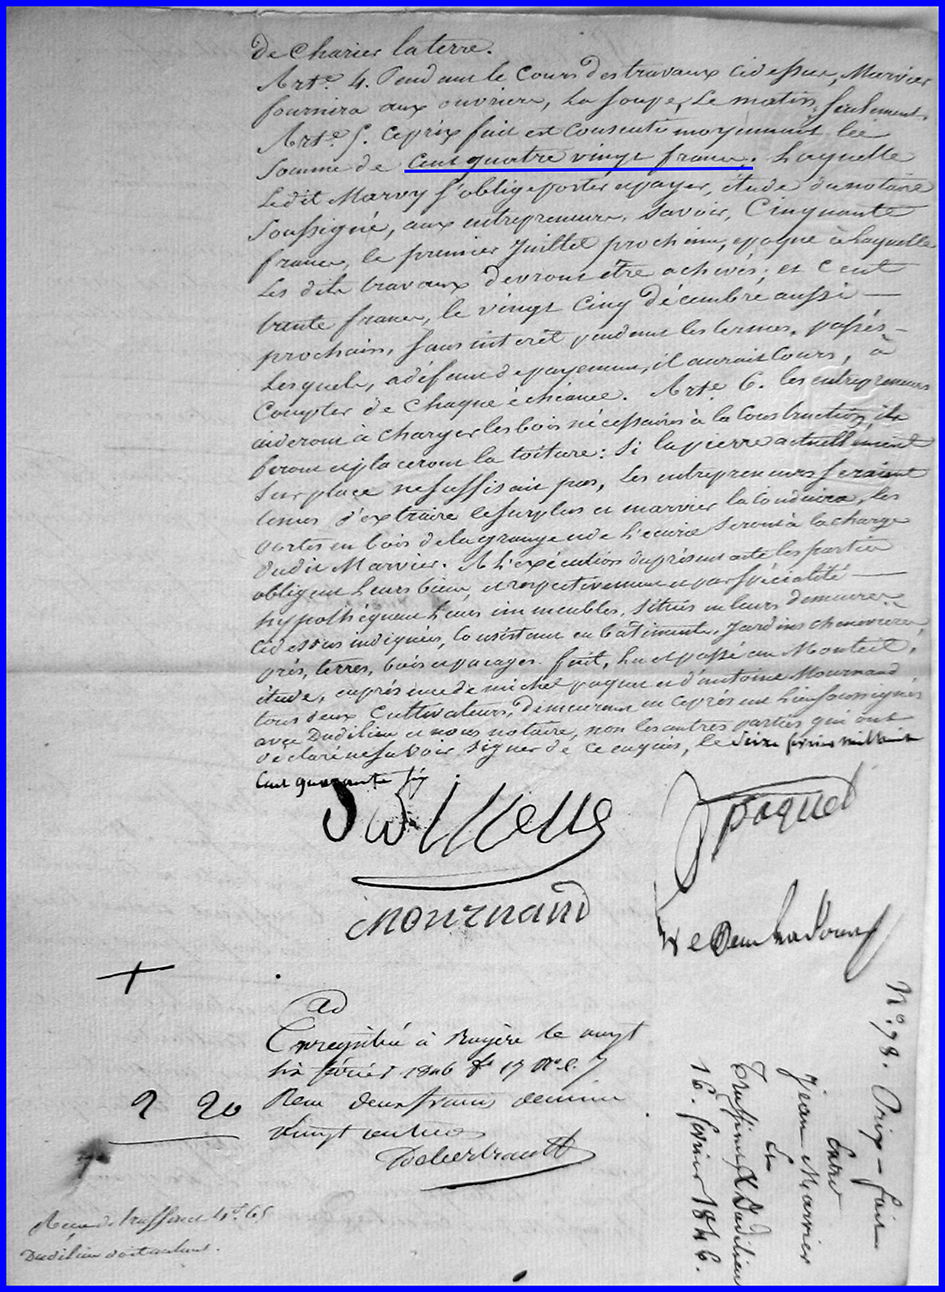 de charier la terre.
Arte. 4. Pendant le cours des travaux cidessus, Marvier
fournira aux ouvriers, la soupe, le matin, seulement.
Arte. 5. ce prix fait est consenti moyennant la
somme de cent quatre vingt francs. Laquelle
ledit Marvy s'oblige porter et payer, étude du notaire
soussigné, aux entrepreneurs, savoir, Cinquante
francs, le premier juillet prochain, epoque à laquelle
les dits travaux devront être achevés; et cent
trente francs, le vingt cinq décembre aussi
prochain, sans interêt pendant les termes, passés
lesquels, à défaut de payement, il aurait cours, à
compter de chaque échéance. Arte. 6. les entrepreneurs
aideront à charger les bois nécessaires à la construction, ils
feront et placeront la toiture: si la pierre actuellement
sur place ne suffisait pas, les entrepreneurs seraient
tenus d'extraire le surplus et marvier la conduira, les
portes en bois de la grange et de l'écurie seront à la charge
dudit Marvier. A l'exécution du présent acte les parties
obligent leurs biens, et respectivement et par spécialité
hypothéquent leurs immeubles, situés en leurs demeures
cidessus indiquées, consistant en bâtiments, jardins chenevières
prés, terres, bois et pacages. fait, lu et passé au Monteil,
étude, en présence de michel paquet et d'antoine Mournand
tous deux cultivateurs, demeurant en ceprésent lieu soussignés
avec Dudilieu et nous notaire, non les autres parties qui ont
déclaré ne savoir signer de ce enquis, le seize février mil huit
cent quarante six
paquet
Mournand
Enregistré à le vingt
six février 1846 fo 17
Reçu deux francs decime
vingt centimes
2 20
No. 98. Prix-fait
Entre
Jean Marvier
Et
Dudilieu
16. février 1846.